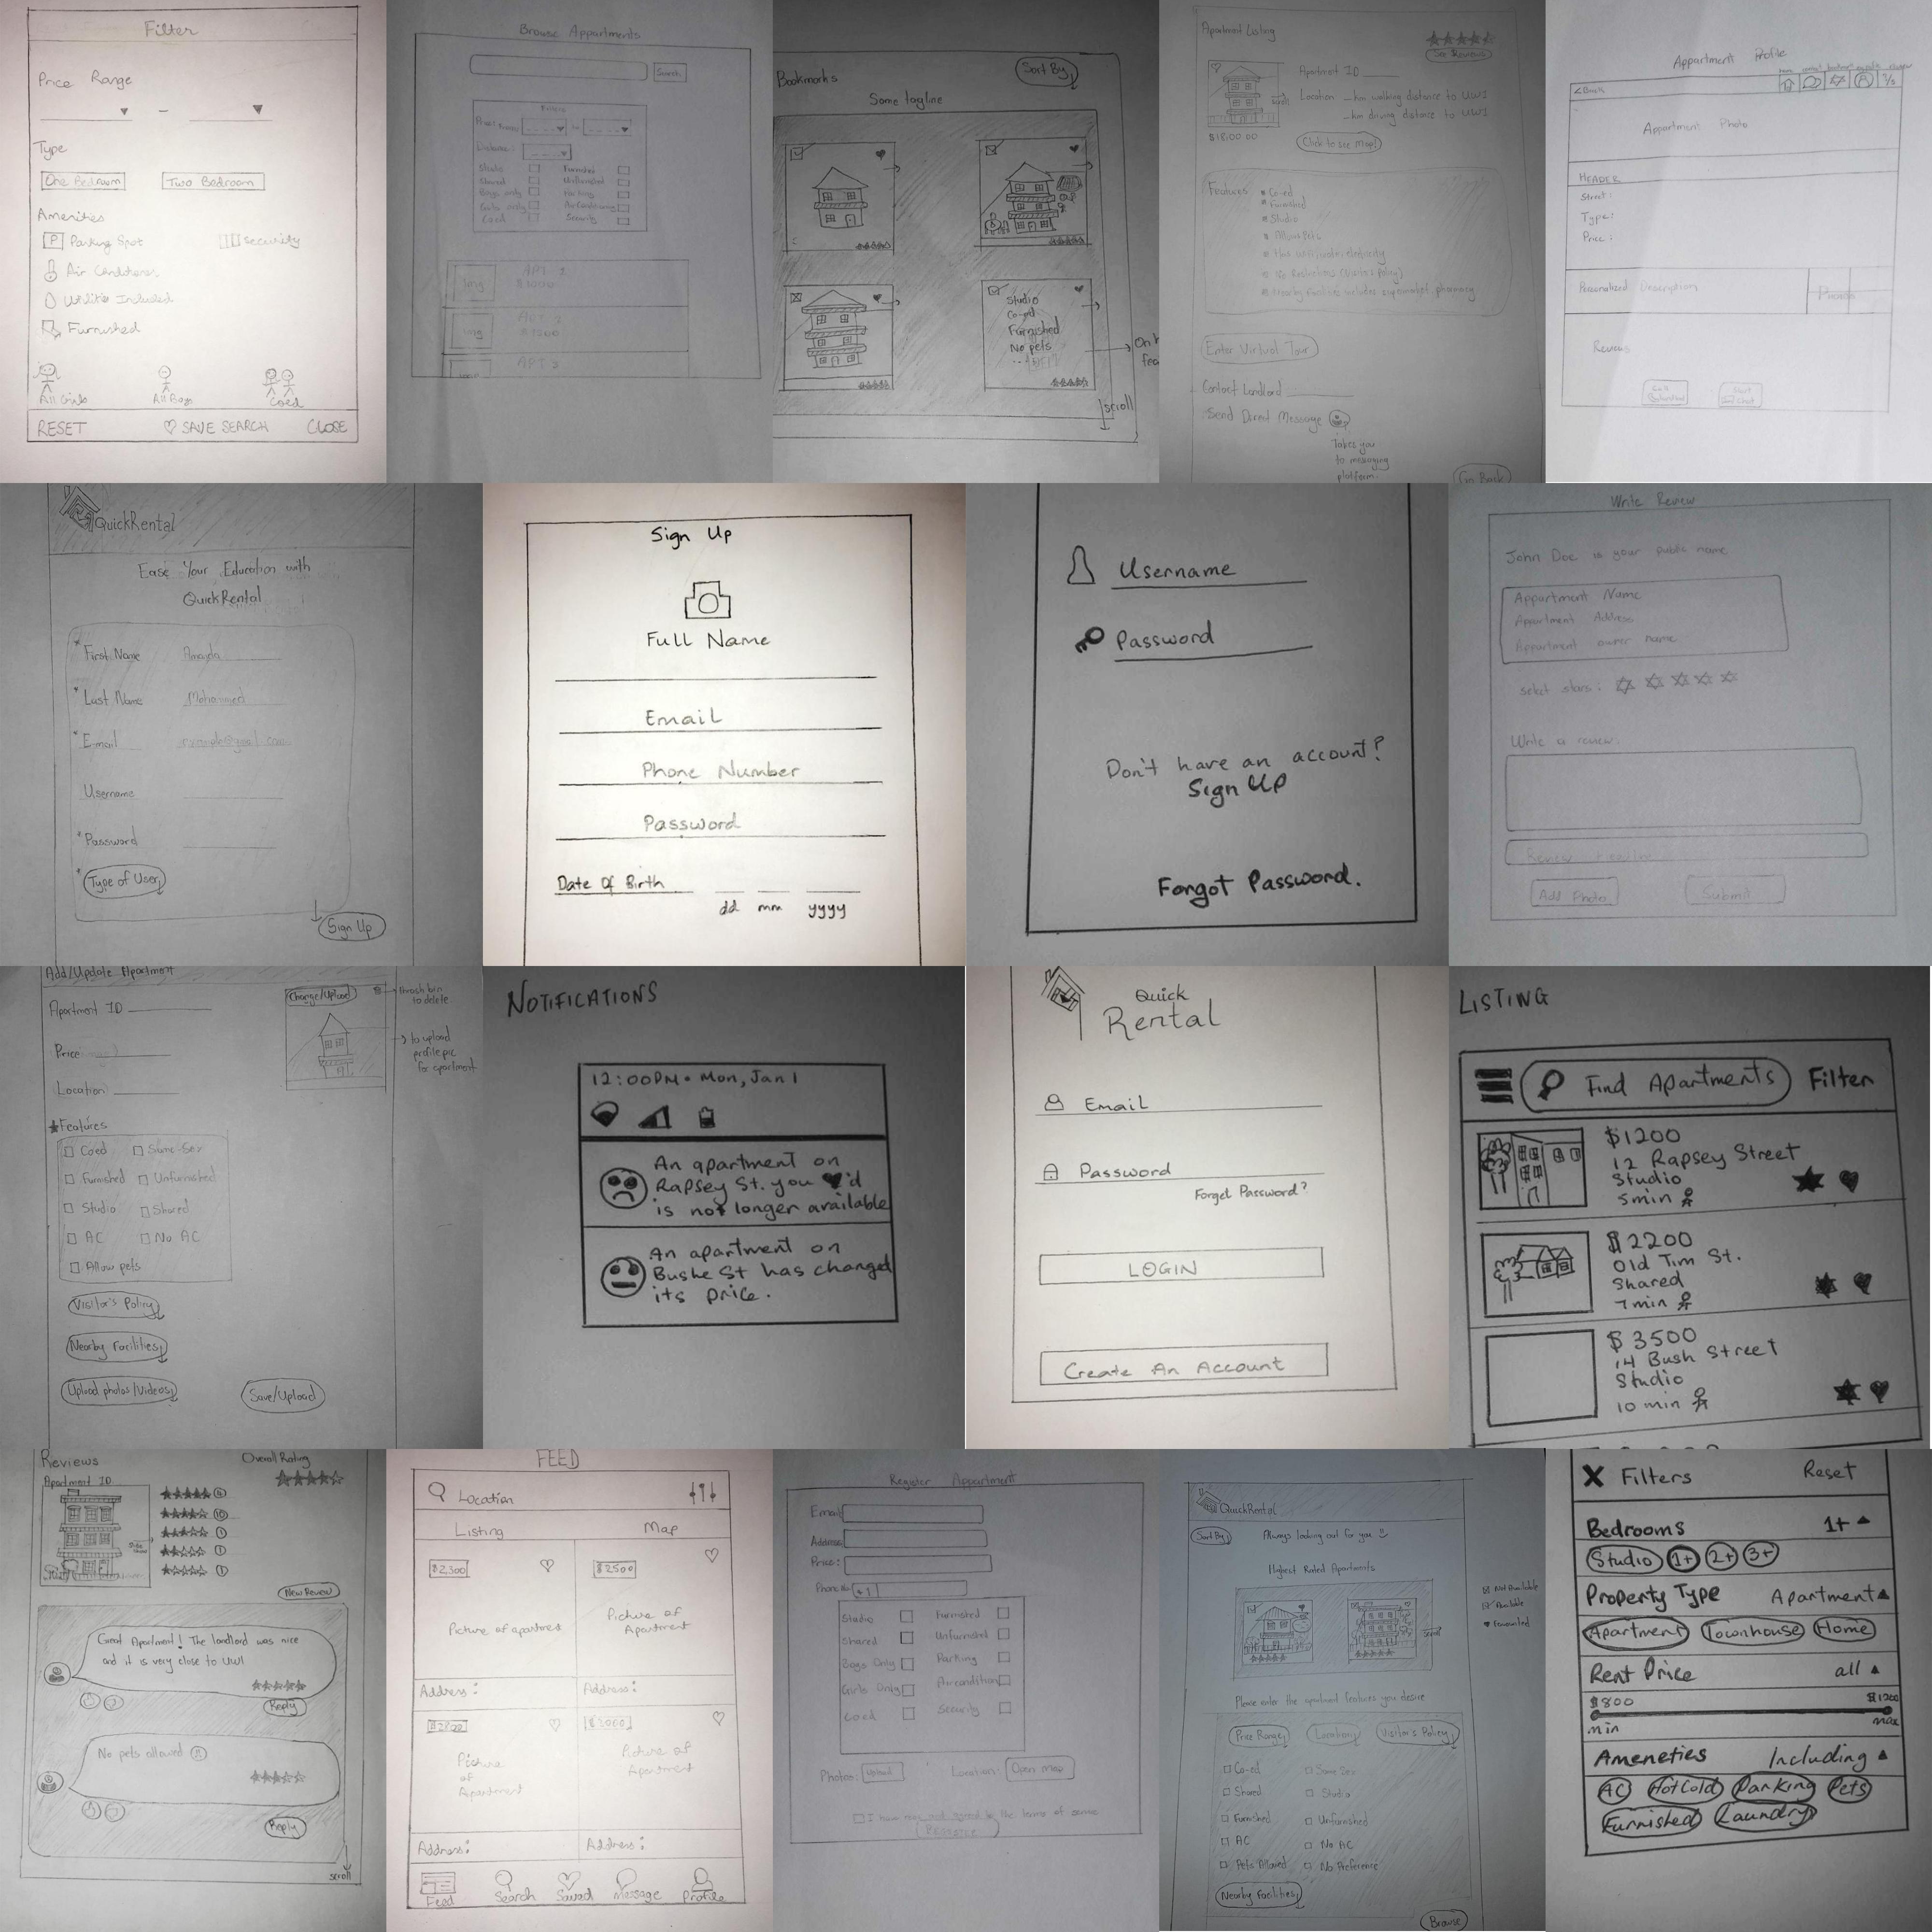 Filter
Price Range
–
Type
One Bedroom
Two Bedroom
Amenities
P Parking Spot
security
Air Conditioner
Utilities Included
Furnished
All Girls
All Boys
Coed
RESET
SAVE SEARCH
CLOSE
Browse Appartments
Search
Price Range
to
Distance:
Studio
Furnished
Shared
Unfurnished
Boys only
Parking
Girls only
Air Conditioning
Coed
Security
img
APT 1
$1000
img
APT 2
$1200
APT 3
Bookmarks
Sort By
Some tagline
Studio
Co-ed
Furnished
No pets
scroll
Apartment Listing
See Reviews
Apartment ID
Location _km walking distance to UWI
_km driving distance to UWI
$1800.00
Click to see map!
Features
Co-ed
Furnished
Studio
Allows Pets
Has wifi, water, electricity
No Restrictions (Visitor's policy)
Nearby facilities includes supermarket, pharmacy
Enter Virtual Tour
Contact Landlord
Send Direct Message
Takes you
to messaging
platform.
Go Back
Appartment Profile
<Back
Appartment Photo
HEADER
Street:
Type:
Price:
Personalized Description
Reviews
QuickRental
Ease Your Education with
QuickRental
*First Name
*Last Name Mohammed
*E-mail
Username
*Password
*Type of User
Sign Up
Sign Up
Full Name
Email
Phone Number
Password
Date Of Birth
dd mm yyyy
Username
Password
Don't have an account?
Sign Up
Forgot Password.
Write Review
John Doe is your public name
Appartment Name
Appartment Address
Appartment owner name
select stars:
Write a review:
Add Photo
Submit
Add/Update Apartment
Apartment ID
Change/Upload
trash bin
to delete
Price
to upload
profile pic
for apartment
Location
Features
Coed
Same-Sex
Furnished
Unfurnished
Studio
Shared
AC
No AC
Allow pets
Visitor's Policy
Nearby Facilities
Upload photos/videos
Save/Upload
NOTIFICATIONS
12:00PM • Mon, Jan 1
An apartment on
Rapsey St. you ♥'d
is not longer available
An apartment on
Bushe St has changed
its price.
Quick
Rental
Email
Password
Forget Password?
LOGIN
Create An Account
LISTING
Find Apartments
Filter
$1200
12 Rapsey Street
Studio
5min
$2200
Old Tim St.
Shared
7min
$3500
14 Bush Street
Studio
10 min
Reviews
Overall Rating
Apartment ID
New Review
Great Apartment! The landlord was nice
and it is very close to UWI
Reply
No pets allowed
Reply
scroll
FEED
Location
Listing
Map
$2,300
$2500
Picture of apartment
Picture of
Apartment
Address:
Address:
$2800
$3000
Picture
of
Apartment
Picture of
Apartment
Address:
Address:
Feed
Search
Saved
Message
Profile
Register Appartment
Email
Address
Price:
Phone No +1
Studio
Furnished
Shared
Unfurnished
Boys Only
Parking
Girls Only
Aircondition
Coed
Security
Photos: Upload
Location: Open map
REGISTER
QuickRental
Sort By
Always looking out for you
Highest Rated Apartments
Not Available
Available
Favourited
scroll
Please enter the apartment features you desire
Price Range
Location
Visitor's Policy
Co-ed
Same Sex
Shared
Studio
Furnished
Unfurnished
AC
No AC
Pets Allowed
No Preference
Nearby Facilities
Browse
X Filters
Reset
Bedrooms
1+
Studio
1+
2+
3+
Property Type
Apartment
Apartment
Townhouse
Home
Rent Price
all
$800
$1200
min
max
Ameneties
Including
AC
HotCold
Parking
Pets
Furnished
Laundry